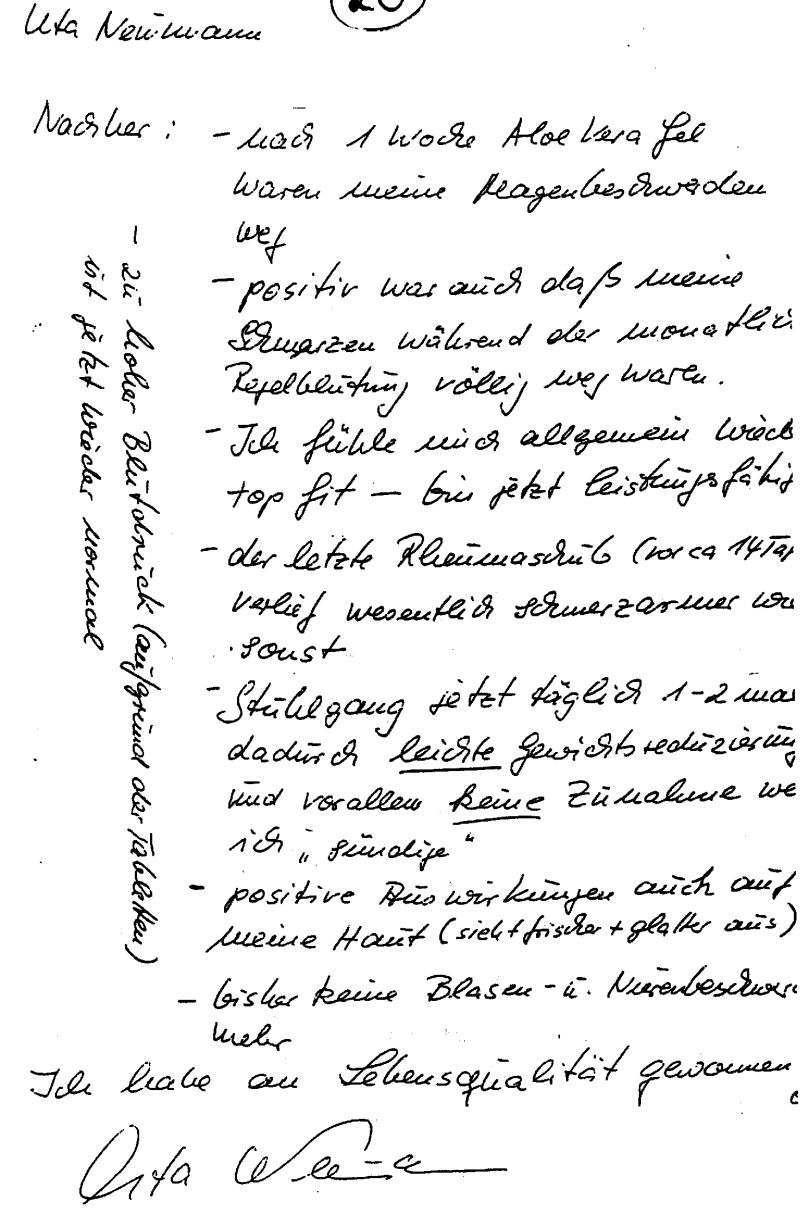 20
Uta Neumann
Nachher : - nach 1 Woche Aloe Vera Gel
waren meine Magenbeschwerden
weg
- positiv war auch daß meine
Schmerzen während der monatlic
Regelblutung völlig weg waren.
- Ich fühle mich allgemein wied
top fit – bin jetzt leistungsfähig
- der letzte Rheumaschub (vor ca 14 Tag
verlief wesentlich schmerzarmer
sonst
- Stuhlgang jetzt täglich 1-2 mal
dadurch leichte Gewichtsreduzierung
und vorallem keine Zunahme we
ich „sündige“
- positive Auswirkungen auch auf
meine Haut (sieht frischer + glatter aus)
- bisher keine Blasen- u. Nierenbeschwer
mehr
- zu hoher Blutdruck (aufgrund der Tabletten)
ist jetzt wieder normal
Ich habe an Lebensqualität gewonnen
Uta